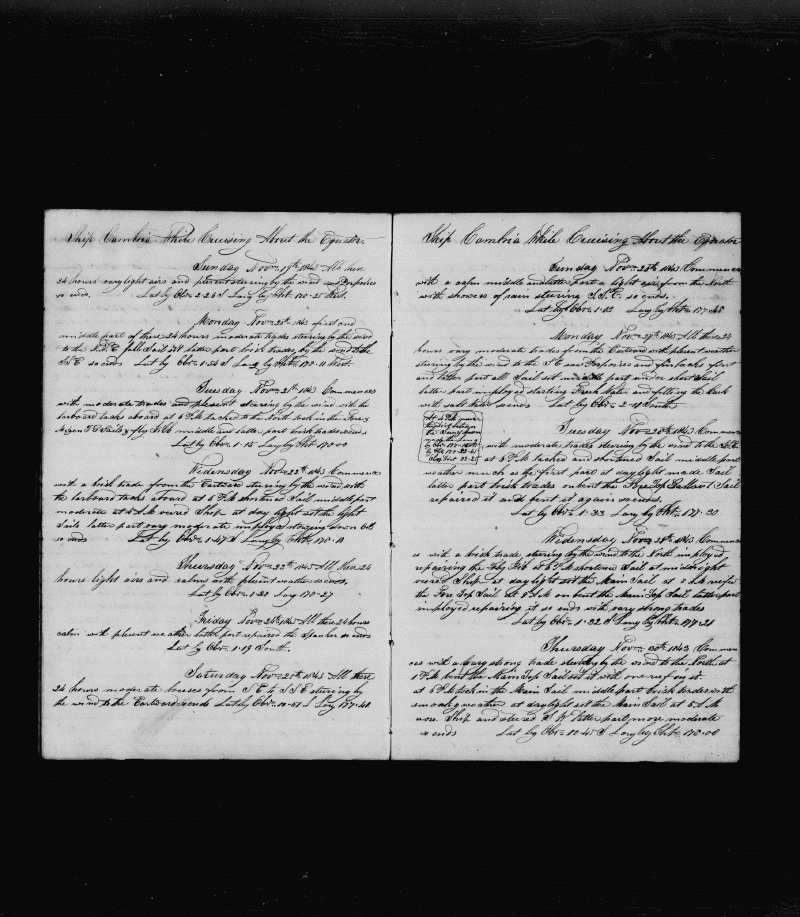 Ship Cambria While Cruising About the Equator
Sunday Nov 19th 1843 All these
24 hours very light airs and plesent stearing by the wind saw Porpoises
so ends. Lat by Obr 2-26 S Long by Cht 170-25 West.
Monday Nov 20th 1843 first and
middle part of these 24 hours moderate trades stearing by the wind
to the S.S.E full Sail set latter part brisk trades by the wind to the
S.E so ends Lat by Obr 1-54 S Long by Cht 170-11 West.
Tuesday Nov 21st 1843 Commences
with moderate trades and plesent stearing by the wind with the
larboard tacks aboard at 6 P.M tacked to the North took in the Fore &
Mizen T G Sails & fly Jibb middle and latter part brisk trades so ends
Lat by Obr 1-15 Long by Cht 170-00
Wedensday Nov 22nd 1843 Commence
with a brisk trade from the Eastward stearing by the wind with
the larboard tacks aboard at 6 P.M shortened Sail middle part
moderate at 4 A.M veered Ship at day light set the light
Sails latter part very moderate imployed stowing down Oil
so ends Lat by Obr 1-47 S Long by Cht 170-10
Thursday Nov 23rd 1843 All these 24
hours light airs and calms with plesent weather so ends.
Lat by Obr 1-20 Long 170-27
Friday Nov 24th 1843 All these 24 hours
calm with plesent weather latter part repaired the Spanker so ends
Lat by Obr 1-19 South.
Saturday Nov 25th 1843 All these
24 hours moderate breses from S E to S S E stearing by
the wind to the Eastward so ends Lat by Obr 00-51 S Long 177-40
Ship Cambria While Cruising About the Equator
Sunday Nov 26th 1843 Commences
with a calm middle and latter part a light air from the North
with showers of rain stearing S.E. so ends.
Lat by Obr 1-13 Long by Cht 177-45
Monday Nov 27th 1843 All these 24
hours very moderate trades from the Eastward with plesent weather
stearing by the wind to the S E saw Porpoises and finbacks first
and latter part all Sail set middle part under short Sail
latter part imployed starting Fresh Water and filling the cask
with salt Water so ends Lat by Obr 2-07 South
Tuesday Nov 28th 1843 Commences
with moderate trades stearing by the wind to the S.E.
at 6 P.M tacked and shortened Sail middle part
weather much as the first part at daylight made Sail
latter part brisk trades unbent the Fore Top Gallant Sail
repaired it and bent it again so ends.
Lat by Obr 1-33 Long by Cht 177-30
Wedensday Nov 29th 1843 Commen
es with a brisk trade stearing by the wind to the North imployed
repairing the Fly Jibb at 6 P.M shortened Sail at midnight
veered Ship at day light set the Main Sail at 8 A.M reefed
the Fore Top Sail at 9 A.M unbent the Main Top Sail latter part
imployed repairing it so ends with very strong trades
Lat by Obr 1-32 S Long by Cht 177-21
Thursday Nov 30th 1843 Commen
ces with a vary strong trade stearing by the wind to the North at
1 P.M bent the Main Top Sail set it with one reef in it.
at 6 P.M took in the Main Sail middle part brisk trades with
smoaky weather at daylight set the Main Sail at 8 A.M
wore Ship and steered S W latter part more moderate
so ends Lat by Obr 00-45 S Long by Cht 178-00